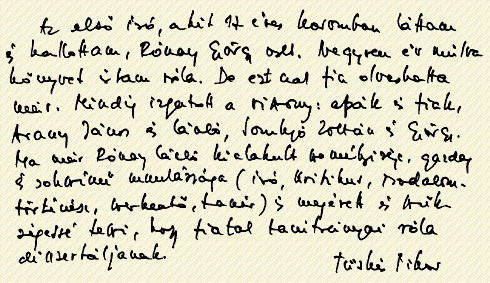 Az első író, akit 17 éves koromban láttam
s hallottam, Rónay György volt. Negyven év múlva
könyvet írtam róla. De ezt csak fia olvashatta
már. Mindig izgatott a viszony: apák és fiak,
Arany János és László, Somlyó Zoltán és György.
Ma már Rónay László kialakult személyisége, gazdag
és sokszínű munkássága (író, kritikus, irodalom-
történész, szerkesztő, tanár) is megérett és szük-
ségessé teszi, hogy fiatal tanítványai róla
disszertáljanak.
Tüskés Tibor